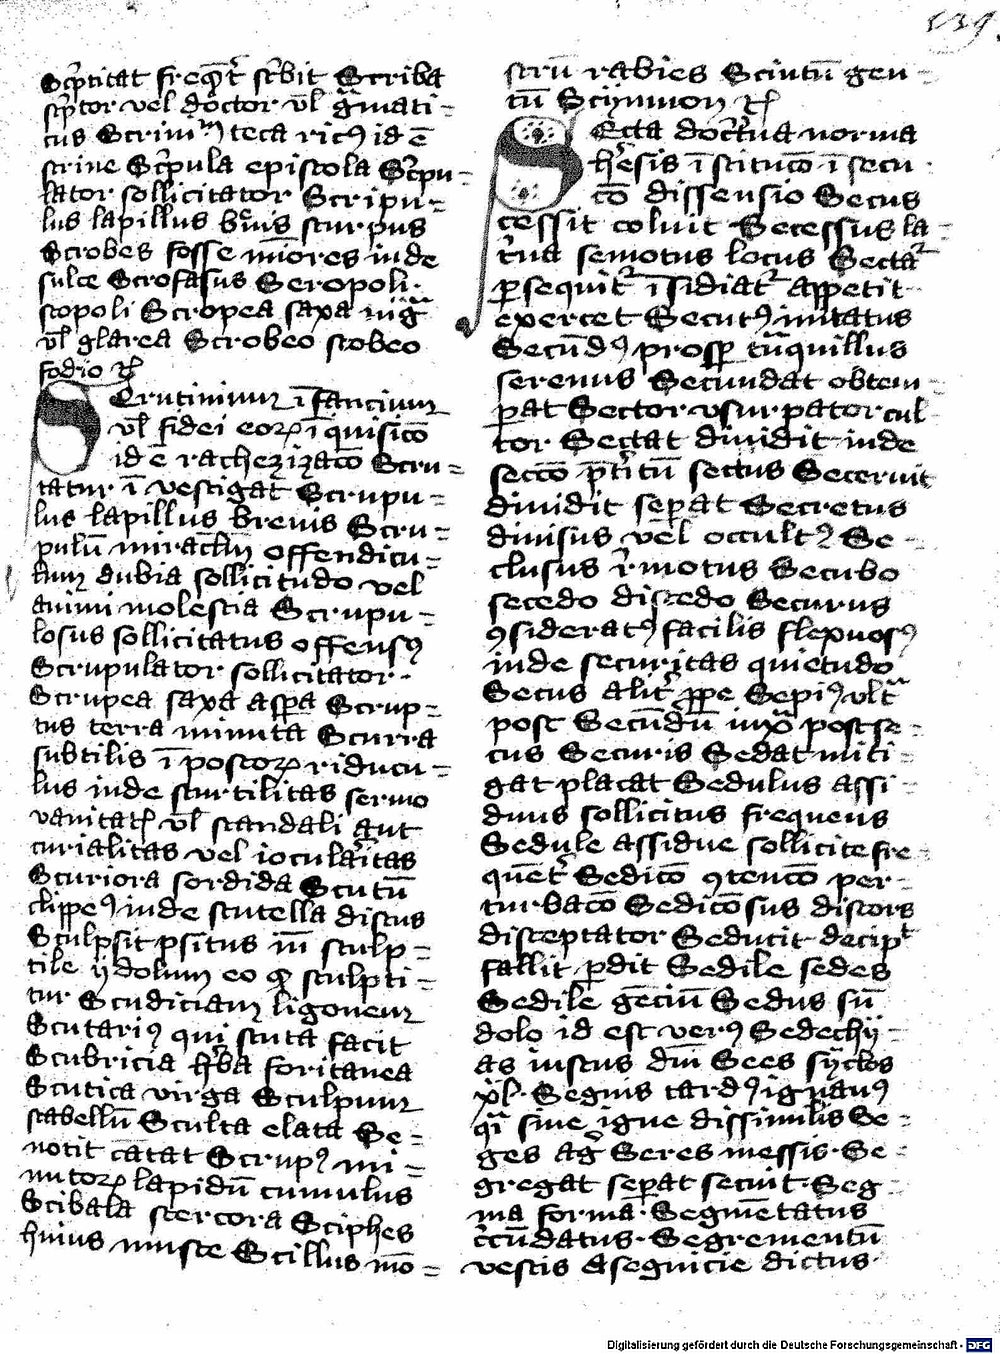 139.
Sc͛ptitat freq̅t̅ sc͛bit Scriba
sc͛ptor vel doctor vl̅ g̅mati=
cus Scrim teca ric⁹ id ē
scrine Sc͛pula episcola Sc͛pu=
lator sollicitator Scripu=
lus lapillus breuis scirpus
Scrobes fosse miores inde
sulce Scrofasus Seropoli·
scopoli Scropea saxa nig̅
vl̅ glarea Scrobeo scobeo
fodio
Scrutinium
vl̅ fidei eoꝝ īquisicō
id e rachezizacō Scru=
tatur ī vestigat Scrupu=
lus lapillus breuis Scru=
pulū miraclm offendicu=
lum dubia sollicitudo vel
animi molestia Scrupu=
losus sollicitatus offensꝰ
Scrupulator sollicitator·
Scrupea saxa asꝑa Scrup=
tus terra minuta Scurra
subtilis ī postoꝝ riducu=
lus inde scurtilitas sermo
vanitatꝭ vl̅ scandali aut
curialitas vel iocularitas
Scuriora sordida Scutū
clippeꝰ inde scutella discus
Sculpsit sculp=
tile ydolum eo ꝙ sculpti=
tur Scudiciam ligonem
Scutariꝰ qui scuta facit
Scubricia h̅ba foritanea
Scutica virga Sculpum
scabellū Sculta elata Se=
notit cātat Scrupꝰ mi=
nutoꝝ lapidū cumulus
Scibala stercora Sciphes
huius musce Scillus mō=
strū rabies Scintū gen=
tū Scynmon
Secta doct͛na norma
h͛esis īstitucō īsecu·
cō dissensio Secus
cessit coluit Secessus la=
t͛na semotus locus Sectat͛
ꝑsequit͛ īsidiat͛ appetit·
exercet Secutꝰ imitatus
Secūdꝰ prosꝑ t̅nquillus
serenus Secundat obtem=
ꝑat Sector vsurpator cul=
tor Sectat diuidit inde
seccō p̅titū sectus Seceruit
diuidit seꝑat Secretus
diuisus vel occultꝰ Se=
clusus r͛motus Secubo
secedo discedo Securus
ꝯsideratꝰ facilis flexuosꝰ
inde securitas quietudo
Secus alit͛ ꝓpe Sepiꝰ vlt̅
post Secūdū iuxᵃ post se=
cus Securis Sedat miti=
gat placat Sedulus assi=
duus sollicitus frequens
Sedule assidue sollicite fre=
quēt͛ Sedicō ꝯtencō per=
turbacō Sedicōsus discors
disceptator Seducit decipᵗ
fallit ꝑdit Sedile sedes
Sedile gēciū Sedus sū
dolo id est verꝰ Sedechy=
as iustus dm̅ Sees syclos
xl̅· Segnis tardꝰ ignauꝰ
q̅i sine igne dissimilis Se=
ges ag͛ Seres messis· Se=
gregat seꝑat secuit· Seg=
ma forma· Segmētatus
c͛cūdatus· Segrementū
vestis Asegnicie dictus·
Digitalisierung gefördert durch die Deutsche Forschungsgemeinschaft - DFG